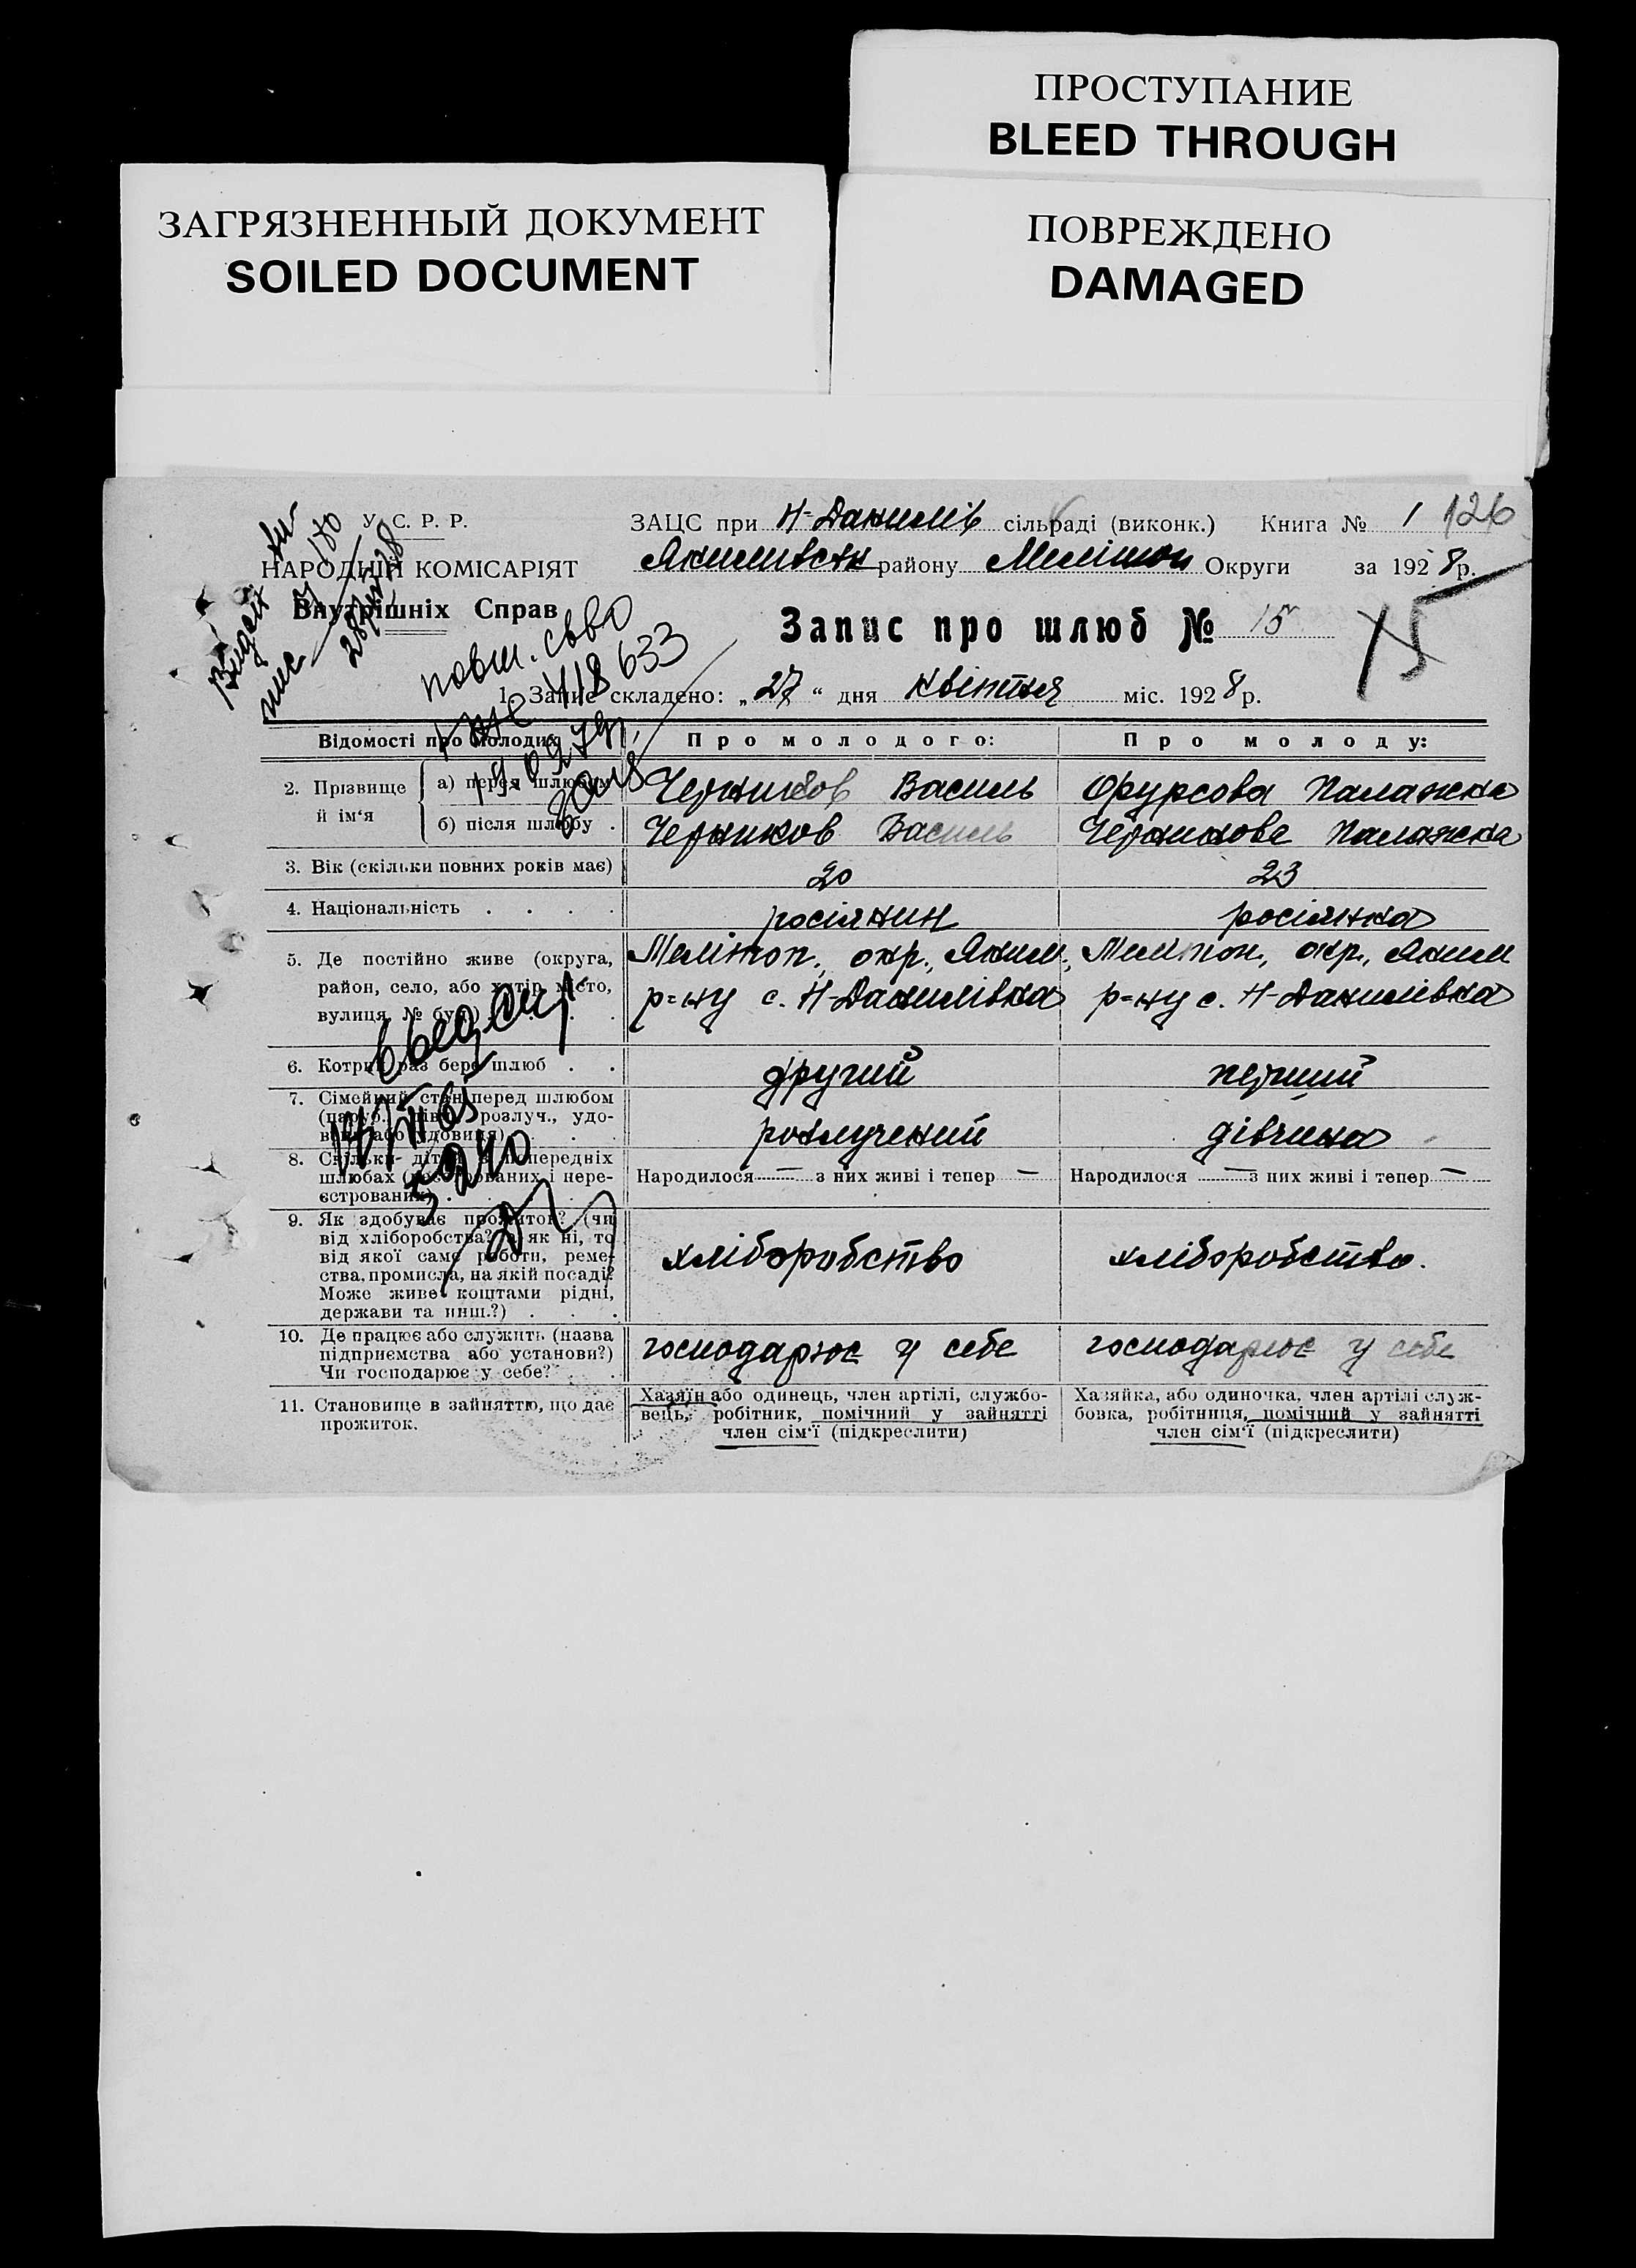 ПРОСТУПАНИЕ
BLEED THROUGH
ЗАГРЯЗНЕННЫЙ ДОКУМЕНТ
SOILED DOCUMENT
ПОВРЕЖДЕНО
DAMAGED
У. С. Р. Р.
НАРОДНІЙ КОМІСАРІЯТ
Внутрішніх Справ
ЗАЦС при Н-Данилів сільраді (виконк.) Книга № 1 126
Якимівськ району Мелітоп Округи за 1928 р.
Запис про шлюб № 15
15
повт. св-во
418633
1. Запис складено: „27“ дня квітня міс. 1928 р.
Відомості про молодих Про молодого: Про молоду:
2. Прізвище й ім‘я
а) перед шлюбом Черников Василь Фурсова Палажка
б) після шлюбу . Черников Василь Черникова Палажка
3. Вік (скільки повних років має) 20 23
4. Національність . . . . росіянин росіянка
5. Де постійно живе (округа, Мелітоп., окр., Яким., Мелітоп., окр., Яким
район, село, або хутір, місто, р=ну с. Н-Данилівка р=ну с. Н-Данилівка
вулиця, № буд.)
6. Котрий раз бере шлюб . . другий перший
7. Сімейний стан перед шлюбом
(паруб., дівч., розлуч., удо-
вець або удовиця) розлучений дівчина
8. Скільки дітей з попередніх
шлюбах (реєстрованих і нере- Народилося — з них живі і тепер — Народилося — з них живі і тепер —
єстрованих)
9. Як здобуває прожиток? (чи
від хліборобства? а як ні, то
від якої саме роботи, реме-
ства, промисла, на якій посаді? хліборобство хліборобство.
Може живе коштами рідні,
держави та инш.?) . . .
10. Де працює або служить (назва
підприємства або установи?) господарює у себе господарює у себе
Чи господарює у себе? . .
11. Становище в зайняттю, що дає
прожиток.
Хазяїн або одинець, член артілі, службо-
вець, робітник, помічний у зайнятті
член сім‘ї (підкреслити)
Хазяйка, або одиночка, член артілі служ-
бовка, робітниця, помічний у зайнятті
член сім‘ї (підкреслити)